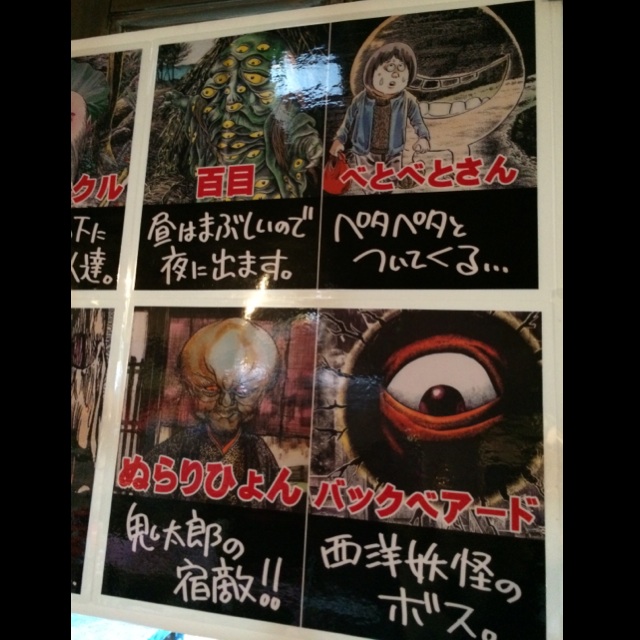 クル
下に
く達。
百目
昼はまぶしいので
夜に出ます。
べとべとさん
ペタペタと
ついてくる…
ぬらりひょん
鬼太郎の
宿敵!!
バックベアード
西洋妖怪の
ボス。